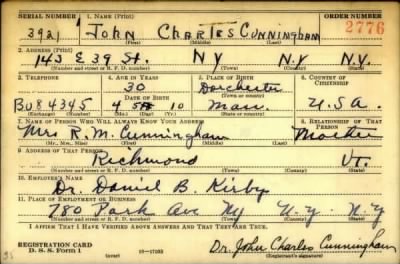 SERIAL NUMBER 1. NAME (Print) ORDER NUMBER
3921 John Charles Cunningham 2776
(First) (Middle) (Last)
2. ADDRESS (Print)
143 E 39 St. N Y N.Y N.Y.
(Number and street or R. F. D. number) (Town) (County) (State)
3. TELEPHONE 4. AGE IN YEARS 5. PLACE OF BIRTH 6. COUNTRY OF CITIZENSHIP
30 Dorchester
DATE OF BIRTH (Town or county)
BU84345 4 10 Mass. U.S.A.
(Exchange) (No.) (Mo.) (Day) (Yr.) (State or country)
7. NAME OF PERSON WHO WILL ALWAYS KNOW YOUR ADDRESS 8. RELATIONSHIP OF THAT PERSON
Mrs R. M. Cunningham Mother
(Mr., Mrs., Miss) (First) (Middle) (Last)
9. ADDRESS OF THAT PERSON
Richmond VT.
(Number and street or R. F. D. number) (Town) (County) (State)
10. EMPLOYER'S NAME
Dr. Daniel B. Kirby
11. PLACE OF EMPLOYMENT OR BUSINESS
780 Park Ave NY N.Y. N.Y
(Number and street or R. F. D. number) (Town) (County) (State)
I AFFIRM THAT I HAVE VERIFIED ABOVE ANSWERS AND THAT THEY ARE TRUE.
REGISTRATION CARD
D. S. S. Form 1 (over) 16—17105 Dr. John Charles Cunningham
(Registrant's signature)